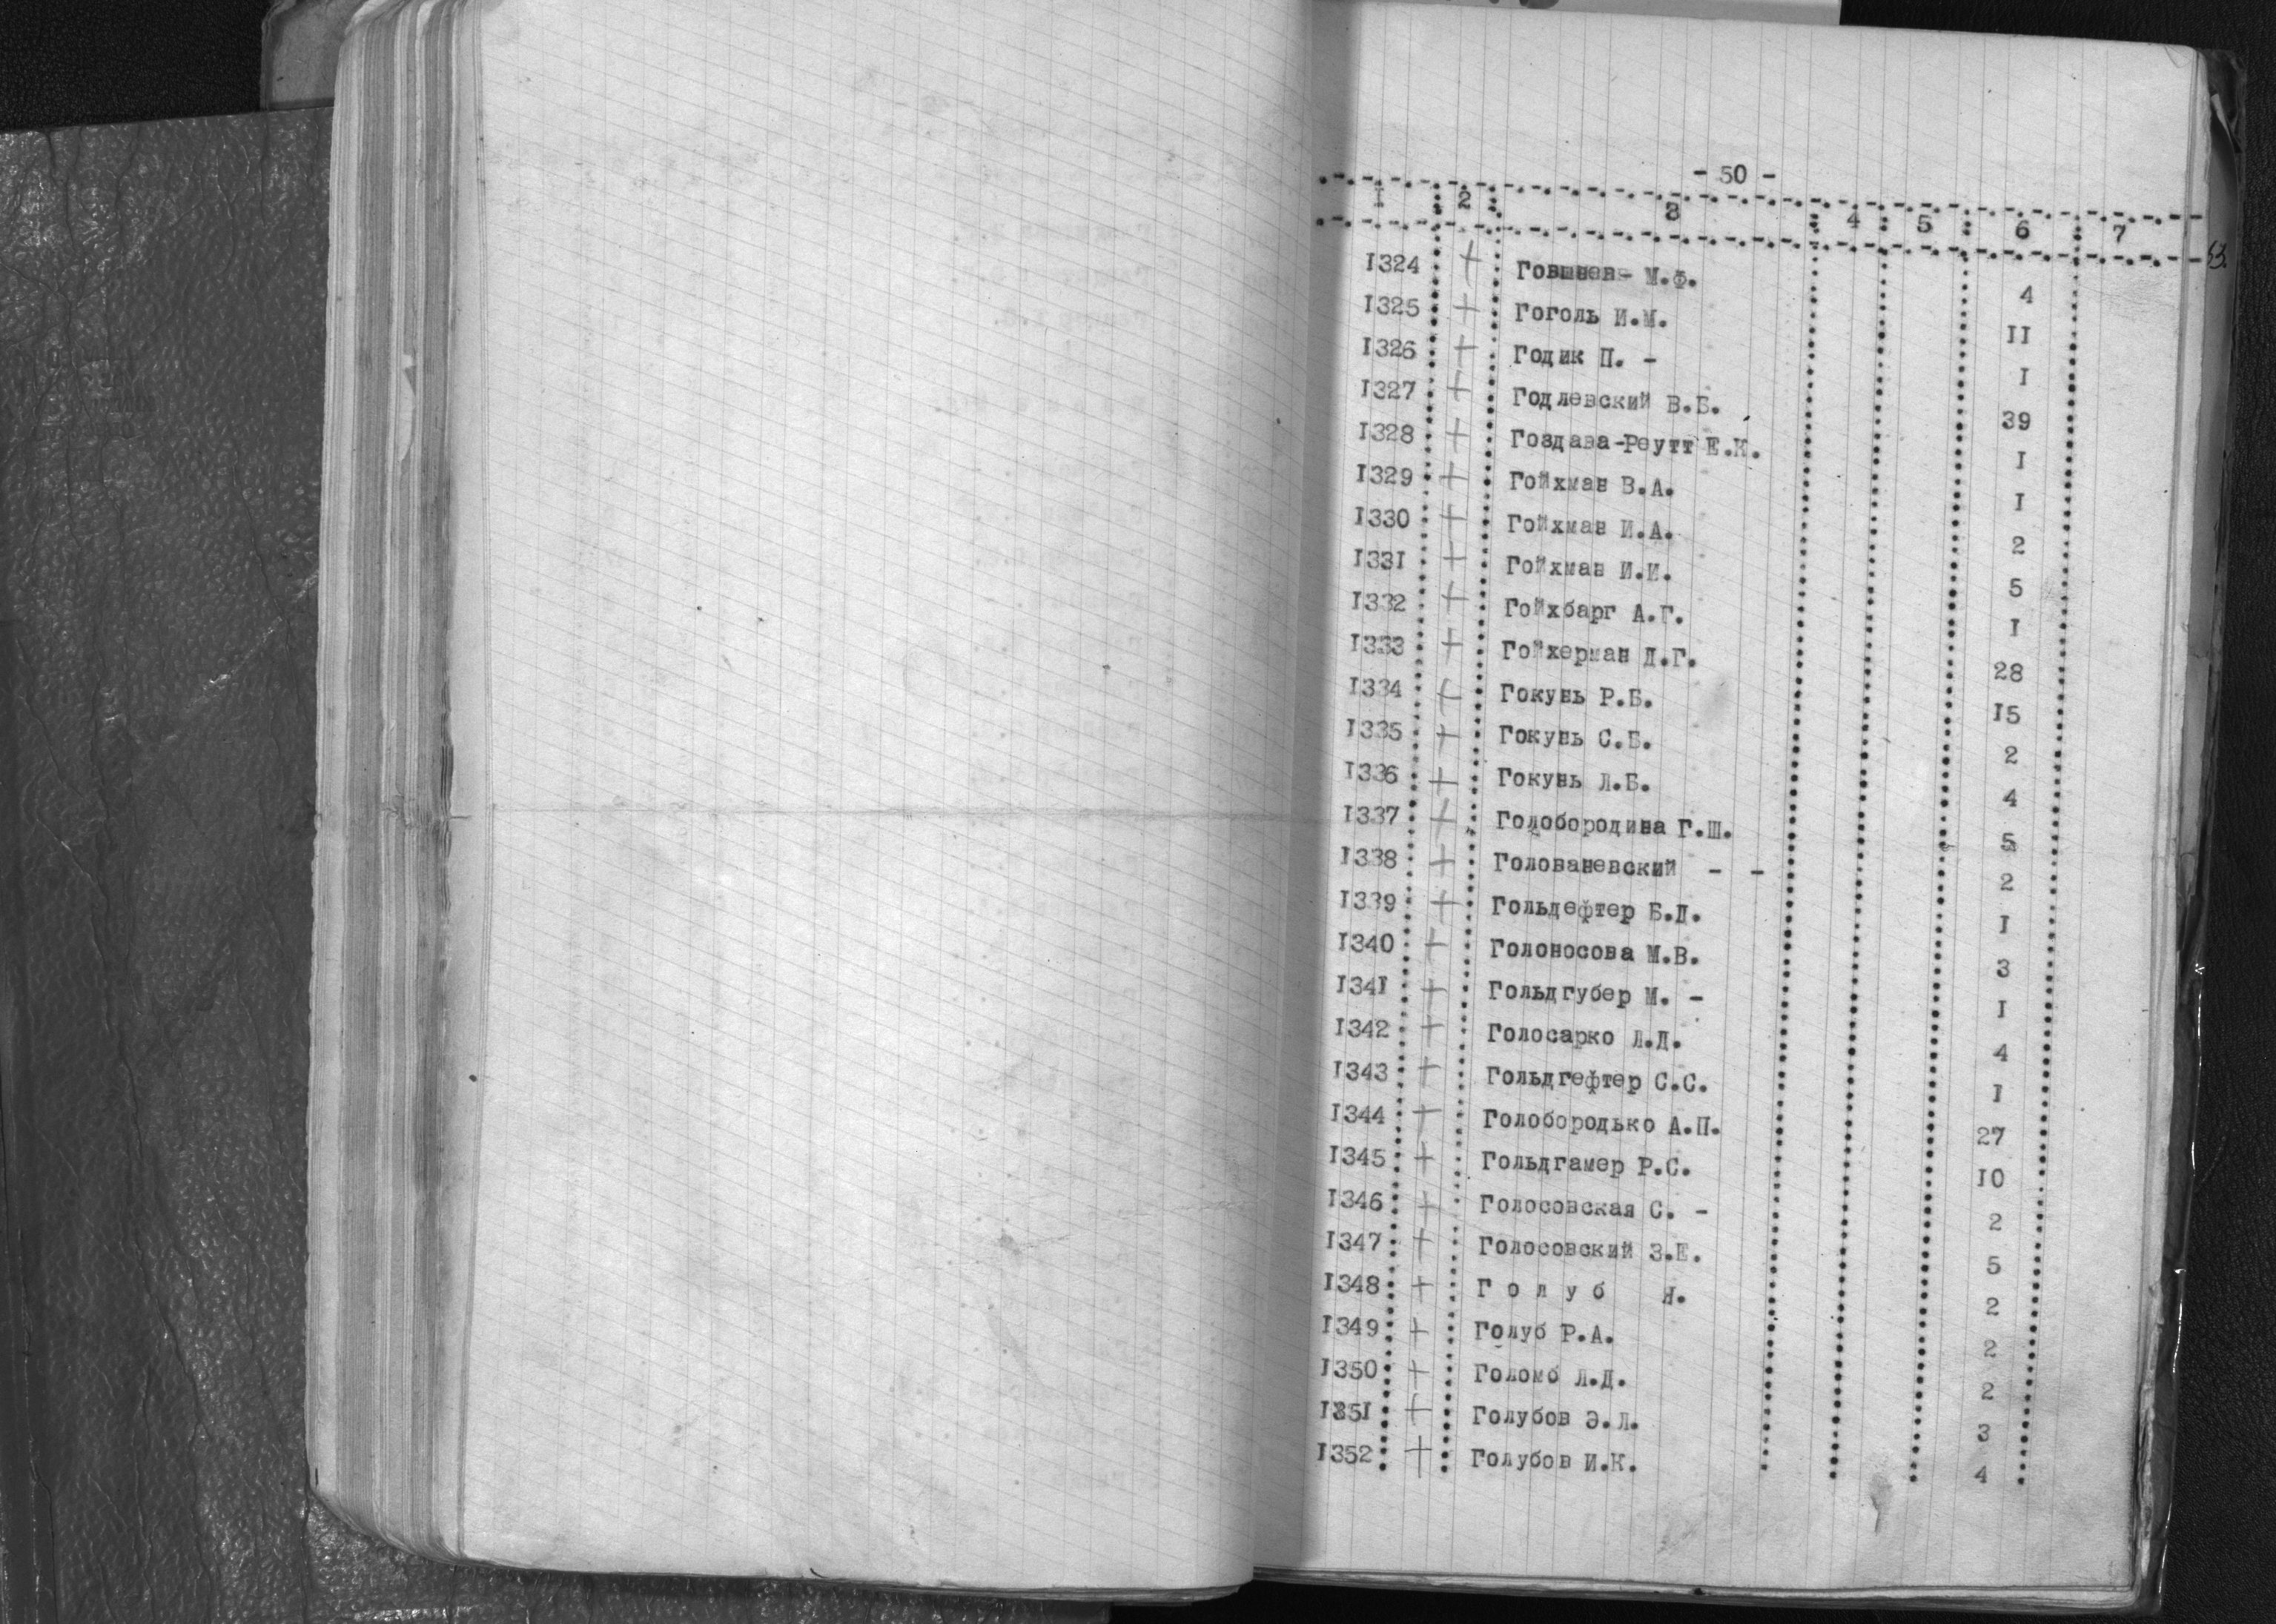 - 50 -
I 2 3 4 5 6 7
53.
I324 + М.Ф. 4
I325 + Гоголь И.М. II
I326 + Годик П. - I
I327 + Годлевский В.Б. 39
I328 + Гоздава-Реутт Е.К. I
I329 + Гойхман В.А. I
I330 + Гойхман И.А. 2
I33I + Гойхман И.И. 5
I332 + Гойхбарг А.Г. I
I333 + Гойхерман Д.Г. 28
I334 + Гокунь Р.Б. I5
I335 + Гокунь С.Б. 2
I336 + Гокунь Л.Б. 4
I337 + Голобородина Г.Ш. 5
I338 + Голованевский - - 2
I339 + Гольдефтер Б.Д. I
I340 + Голоносова М.В. 3
I34I + Гольдгубер М. - I
I342 + Голосарко Л.Д. 4
I343 + Гольдгефтер С.С. I
I344 + Голобородько А.П. 27
I345 + Гольдгамер Р.С. I0
I346 + Голосовская С. - 2
I347 + Голосовский З.Е. 5
I348 + Г о л у б Я. 2
I349 + Голуб Р.А. 2
I350 + Голомб Л.Д. 2
I35I + Голубов Э.Л. 3
I352 + Голубов И.К. 4